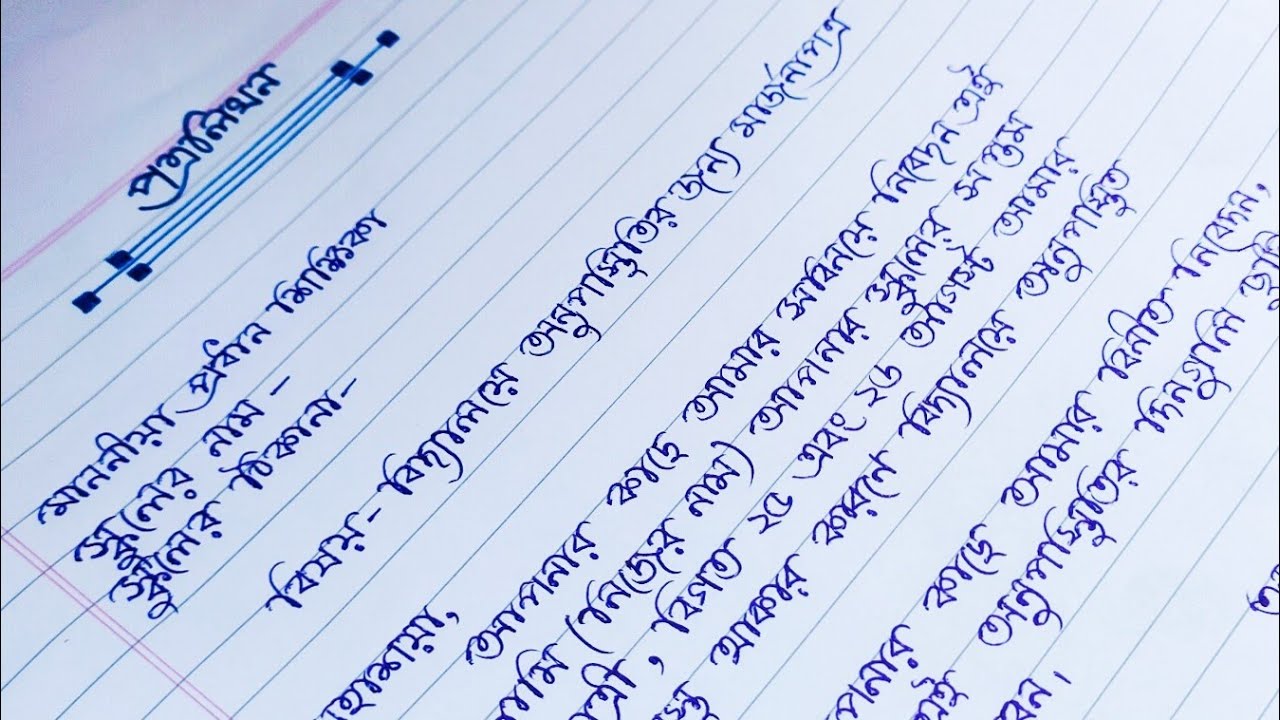 পত্রলিখন
মাননীয়া প্রধান শিক্ষিকা
স্কুলের নাম -
স্কুলের ঠিকানা-
বিষয়- বিদ্যালয়ে অনুপস্থিতির জন্য মার্জনাপত্র
হাশয়া,
আপনার কাছে আমার সবিনয়ে নিবেদন এই
আমি (নিজের নাম) আপনার স্কুলের সপ্তম
ত্রী, বিগত ২৫ এবং ২৬ আগস্ট আমার
স্থ থাকার কারনে বিদ্যালয়ে অনুপস্থিত
পনার কাছে আমার বিনীত নিবেদন,
এই অনুপস্থিতির দিনগুলি
বেন।